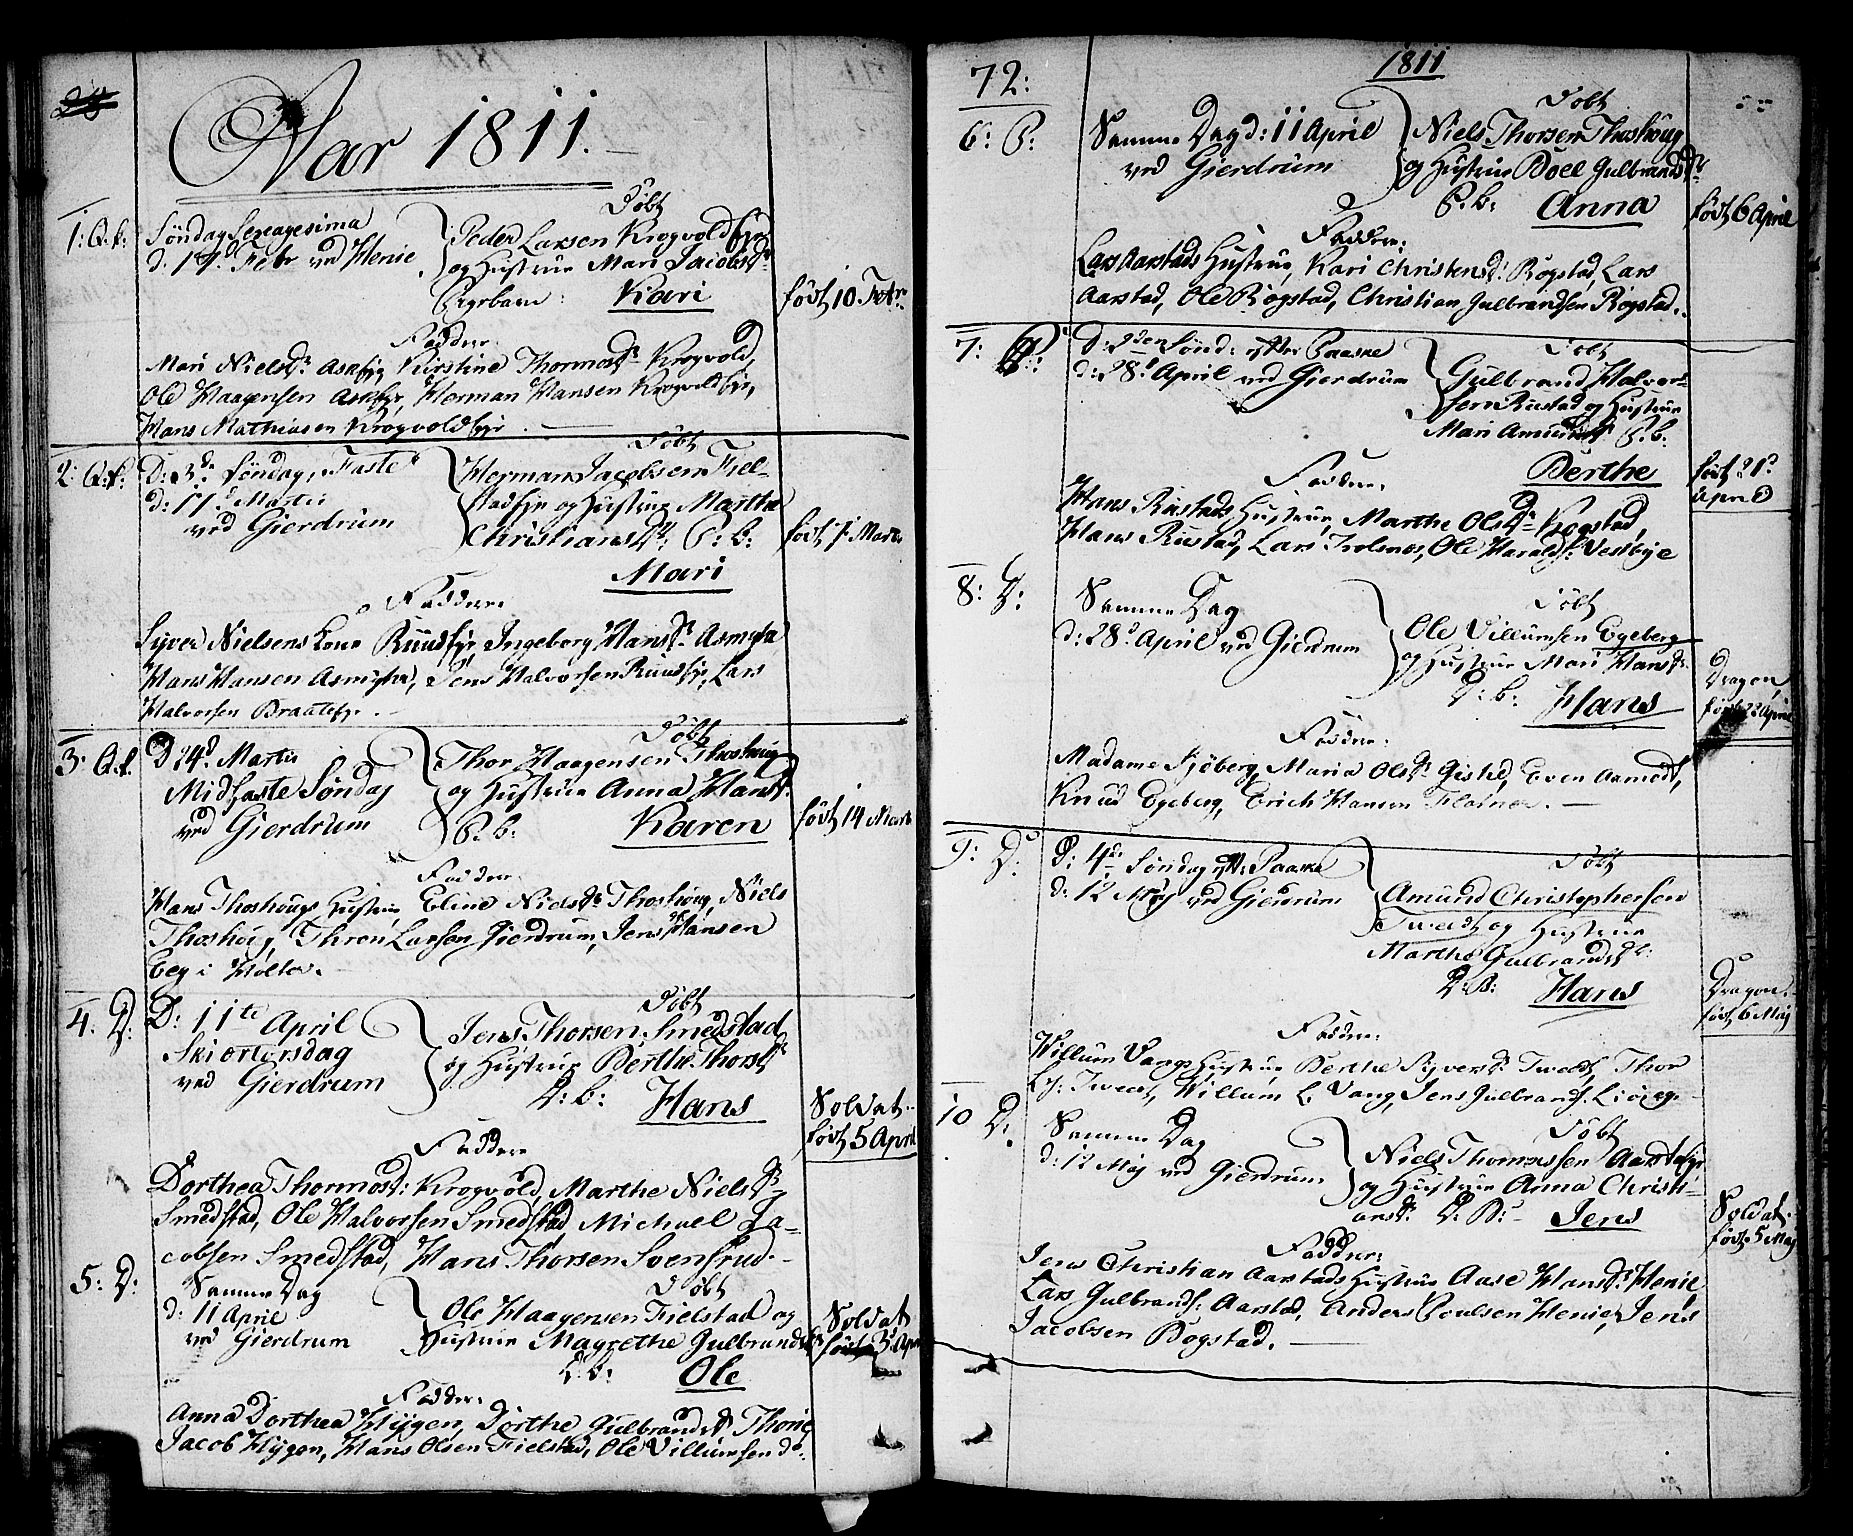 Aar 1811.
1: Q.k:
Søndag Sexagesima
d: 17d Febr ved Henie
Døbt
Peder Larsen Krogvoldeje
og Hustrue Mari Jacobsdr
Pigebarn: Kari
født 10 Febr
Faddere
Mari Nielsdr Askeje, Kirstine Thormosdr Krogvold,
Ole Haagensen Askeje, Herman Hansen Krogvoldeje,
Hans Mathiasen Krogvoldeje.
2: Q.k:
D: 3de Søndag, Faste
d: 17d Martii
ved Gierdrum
Døbt
Herman Jacobsen Fiel-
stadeje og Hustrue Marthe
Christiansdr. P: b:
Mari
født 1 Martii
Faddere
Syver Nielsens Kone Ruudeje, Ingeborg Hansdr Asmyhr
Hans Hansen Asmyhr, Jens Halvorsen Ruudeje, Lars
Halvorsen Braateeje.
3: Q.k.
D 24d Martii
Midfaste Søndag
ved Gierdrum
Døbt
Thor Haagensen Thoshøug
og Hustrue Anna Hansdr.
P. b: Karen
født 14 Marti
Faddere
Hans Thoshøugs Hustrue, Eline Nielsdr Thoshøug, Niels
Thoshøug, Thron Larsen Gierdrum, Jens Hansen
Eeg i Holter.
4: D:
D: 11te April
Skiærtorsdag
ved Gierdrum
Døbt
Jens Thorsen Smedstad
og Hustrue Berthe Thorsdr
D: b: Hans
Soldat
født 5 April
Faddere
Dorthea Thormosd: Krogvold, Marthe Nielsdr
Smedstad, Ole Halvorsen Smedstad, Michael Ja-
cobsen Smedstad, Hans Thorsen Svensrud.
5: D:
Samme Dag
d: 11 April
ved Gierdrum
Døbt
Ole Haagensen Fielstad og
Hustrue Magrethe Gulbrandsdr
D. b: Ole
Soldat
født 3 April
Faddere
Anna Dorthea Hygen, Dorthe Gulbrandsdr Thonie
Jacob Hygen, Hans Olsen Fielstad, Ole Villumsen do.
72:
1811
6: P:
Samme Dag d: 11 April
ved Gierdrum
Døbt
Niels Thorsen Thoshøug
og Hustrue Boel Gulbrandsdr
P. b: Anna
født 6 April
Faddere:
Lars Aarstads Hustrue, Kari Christensd: Rogstad, Lars
Aarstad, Ole Rogstad, Christian Gulbrandsen Rogstad.
7: P:
D: 2den Sønd: efter Paaske
d: 28d April ved Gierdrum
Døbt
Gulbrand Halvor-
sen Rustad og Hustrue
Mari Amundsdr P. b:
Berthe
født 21d
April
Faddere:
Hans Rustads Hustrue, Marthe Olsdr Rogstad,
Hans Rustad, Lars Holsmoe, Ole Haralds: Vestbye
8: D:
Samme Dag
d: 28d April ved Gierdrum
Døbt
Ole Villumsen Egeberg
og Hustrue Mari Hansdr.
D: b: Hans
Dragon
født 22 April
Faddere:
Madame Siøberg, Maria Olsdr Gisted, Even Aamodt,
Knud Egeberg, Erich Hansen Flatner.
9: D:
D: 4de Søndag eft: Paaske
d: 12 Maj ved Gierdrum
Døbt
Amund Christophersen
Tweedt og Hustrue
Marthe Gulbrandsdr:
D: B: Hans
Dragon
født 6 Maj
Faddere:
Willum Vangs Hustrue, Berthe Syversdr Tweedt, Thor
Ejs: Tweedt, Willum L. Vang, Jens Gulbrands.
10 D:
Samme Dag
d: 12 Maj ved Gierdrum
Døbt
Niels Thomessen Aarstadeje
og Hustrue Anna Christi-
ansdr. D: B: Jens
Soldat
født 5 Maj
Faddere:
Jens Christian Aarstads Hustrue, Aase Hansdr Henie
Lars Gulbrands: Aarstad, Anders Poulsen Henie, Jens
Jacobsen Bogstad.